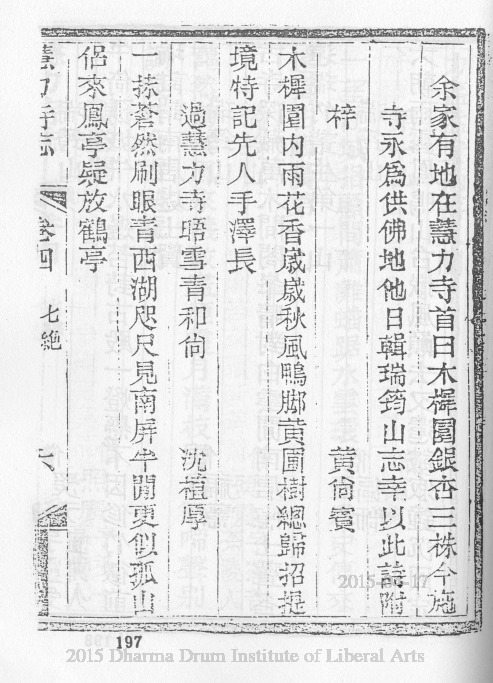 余家有地在慧力寺首曰木樨園銀杏三株今施
寺永爲供佛地他日輯瑞筠山志幸以此詩附
梓
黃尙賓
木樨園內雨花香歲歲秋風鴨脚黃園樹總歸招提
境特記先人手澤長
過慧力寺晤雪青和尙
沈植厚
一抹蒼然刷眼青西湖咫尺見南屏牛閒更似孤山
侶來鳳亭疑放鶴亭
慧力寺志
卷四
七絶
六
197
2015-03-17
2015 Dharma Drum Institute of Liberal Arts